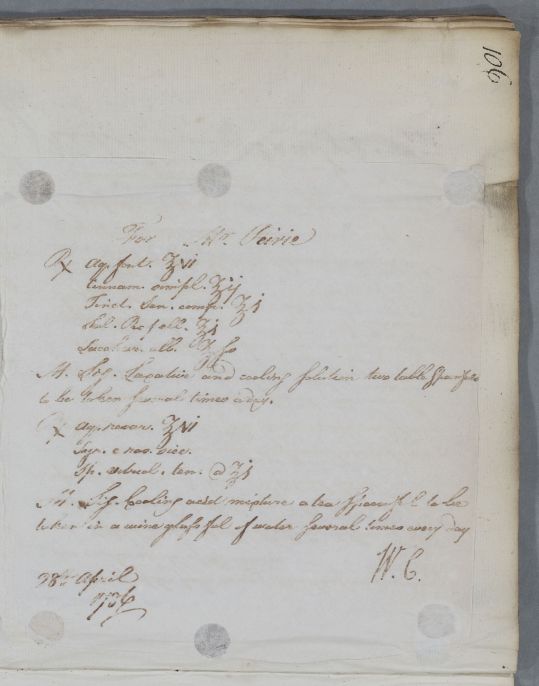 106
For Mr. Peirie
℞ Aq. font. ℥vi
Cinnam. simpl. ℥ij
Tinct. Sen. comp. ℥j
Sal. ℥j
Sacchar. alb. ℥ſs
M. Sig. Laxative and cooling solution two table spoonfuls
to be taken several times a day.
℞ Aq. ℥vi
Syr. e
Sp. vitriol. ten. a ʒj
M. Sig. Cooling acid mixture a tea spoonful to be
taken in a wine glass ful of water several times every day
W. C.
28th April